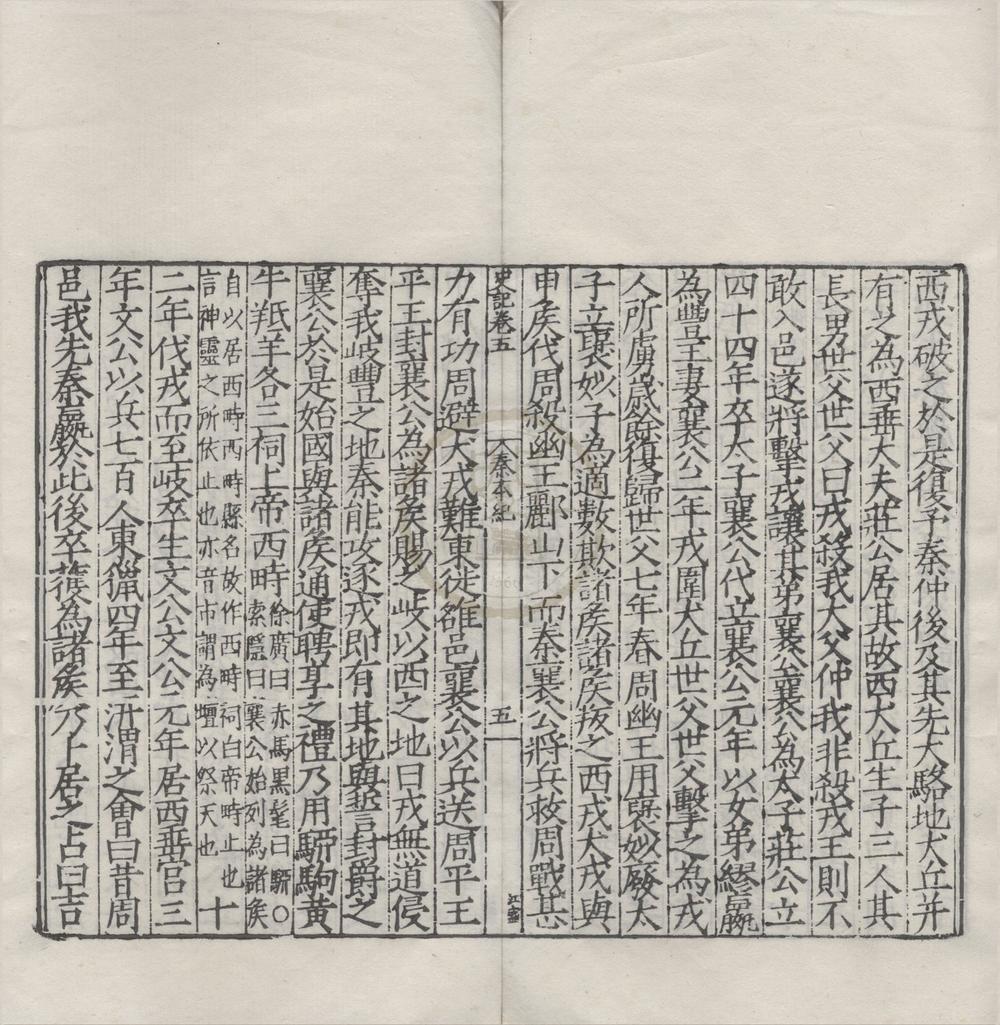 西戎破之於是復予秦仲後及其先大駱地犬丘并
有之為西垂大夫莊公居其故西犬丘生子三人其
長男世父世父曰戎殺我大父仲我非殺戎王則不
敢入邑遂將擊戎讓其弟襄公襄公為太子莊公立
四十四年卒太子襄公代立襄公元年以女弟繆嬴
為豐王妻襄公二年戎圍犬丘世父世父擊之為戎
人所虜歲餘復歸世父七年春周幽王用襃姒廢太
子立襃姒子為適數欺諸侯諸侯叛之西戎犬戎與
申侯伐周殺幽王酈山下而秦襄公將兵救周戰甚
史記卷五
秦本紀
五
力有功周避犬戎難東徙雒邑襄公以兵送周平王
平王封襄公為諸侯賜之岐以西之地曰戎無道侵
奪我岐豐之地秦能攻逐戎即有其地與誓封爵之
襄公於是始國與諸侯通使聘享之禮乃用騂駒黃
牛羝羊各三祠上帝西畤徐廣曰赤馬黑髦曰騂○
索隱曰襄公始列為諸侯
自以居西畤西畤縣名故作西畤祠白帝畤止也
言神靈之所依止也亦音市謂為壇以祭天也
十
二年伐戎而至岐卒生文公文公元年居西垂宮三
年文公以兵七百人東獵四年至汧渭之會曰昔周
邑我先秦嬴於此後卒獲為諸侯乃卜居之占曰吉